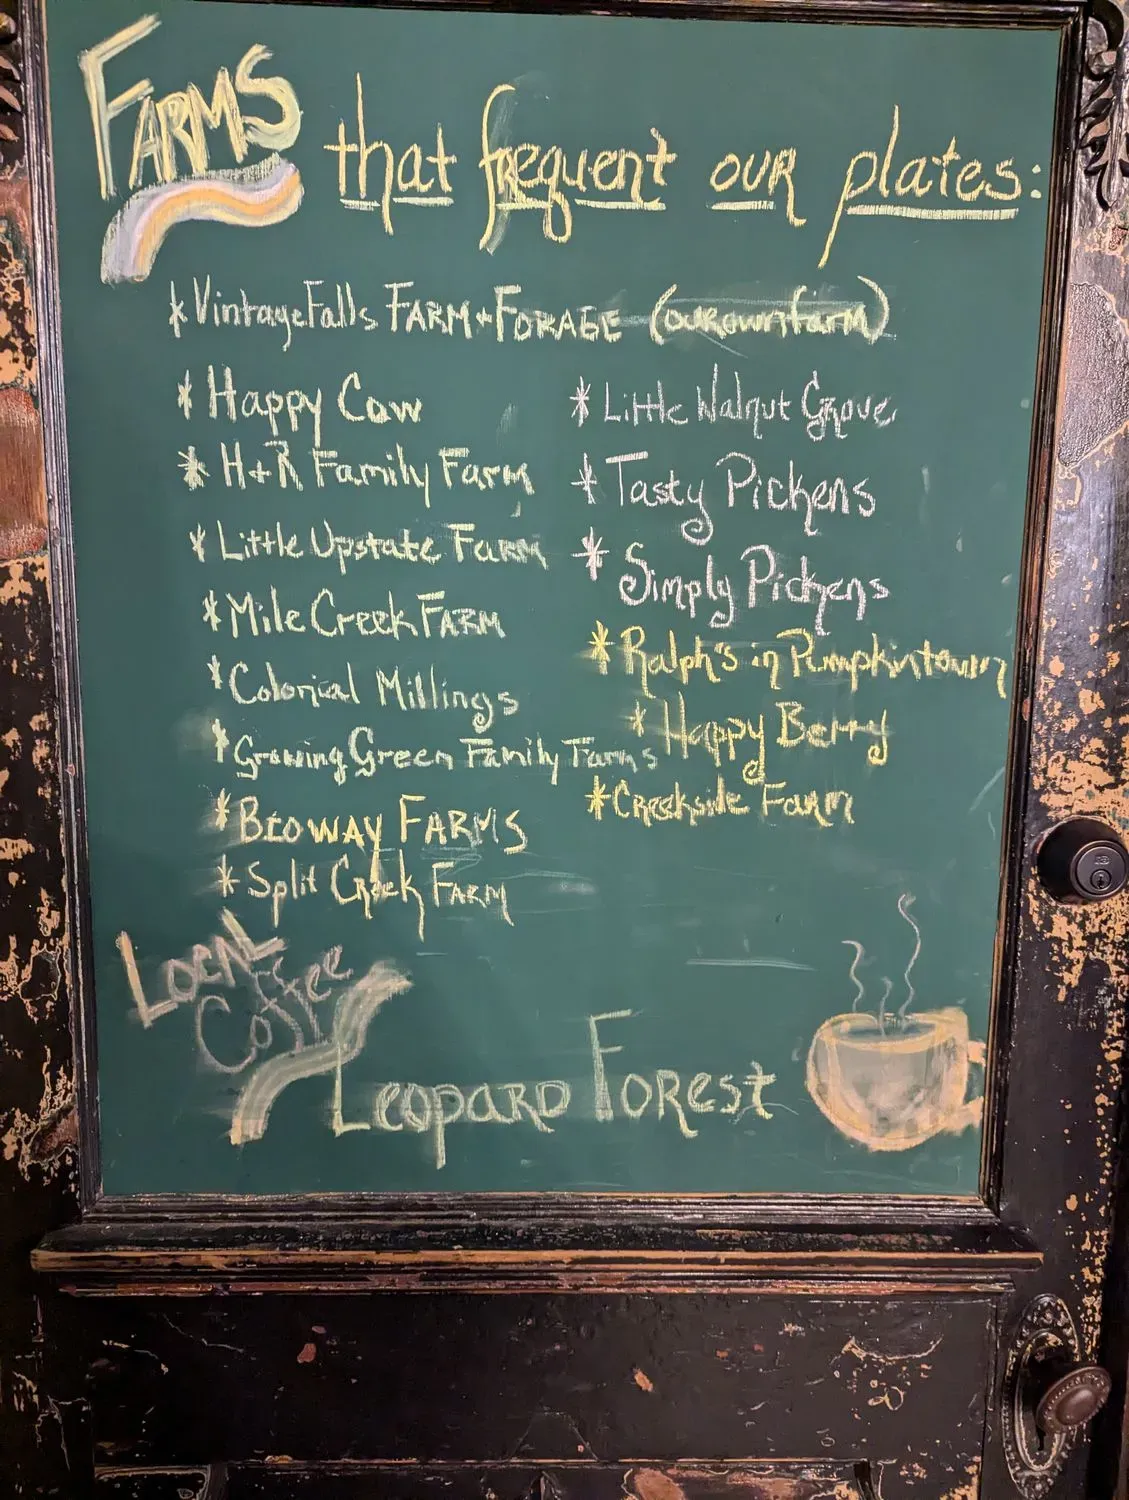 FARMS that frequent our plates:
*VintageFalls FARM+FORAGE (our own farm)
* Happy Cow
* H+R Family Farm
* Little Upstate Farm
* Mile Creek FARM
* Colonial Millings
* Growing Green Family Farms
* BIOWAY FARMS
* Split Creek FARM
* Little Walnut Grove
* Tasty Pickens
* Simply Pickens
* Ralph's in Pumpkintown
* Happy Berry
* Creekside Farm
LOCAL
Coffee
LEOPARD FOREST